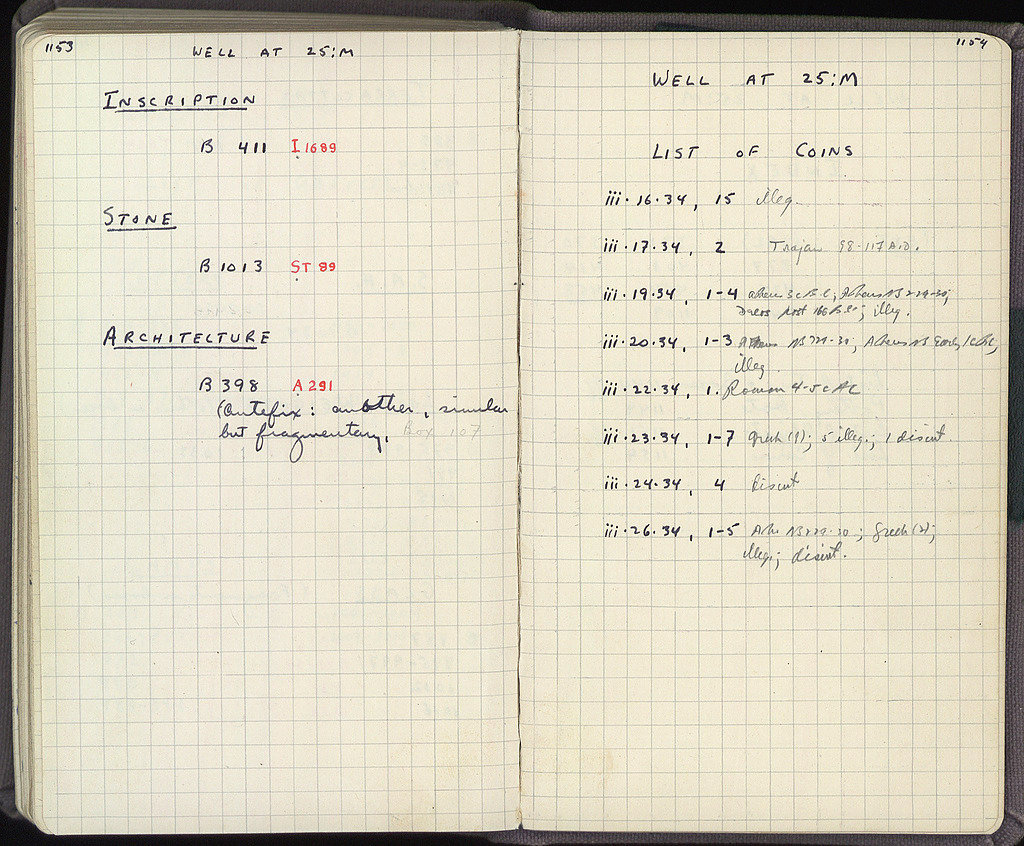 1153
WELL AT 25:M
INSCRIPTION
B 411 I 1689
STONE
B 1013 ST 89
ARCHITECTURE
B 398 A 291
(antefix: another, similar
but fragmentary, Box 107
1154
WELL AT 25:M
LIST OF COINS
iii·16·34, 15 illeg.
iii·17·34, 2 Trajan 98-117 A.D.
iii·19·34, 1-4 Athens 3c B.C.; Athens
post 166 B.C.; illeg.
iii·20·34, 1-3 Athens; Athens Early
illeg.
iii·22·34, 1. Roman 4-5c AC
iii·23·34, 1-7 Greek (1); 5 illeg.; 1 disint.
iii·24·34, 4 Disint
iii·26·34, 1-5 Ath. 30; Greek (2);
illeg.; disint.